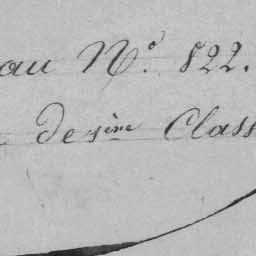 au N.° 822.
de 1ère Class